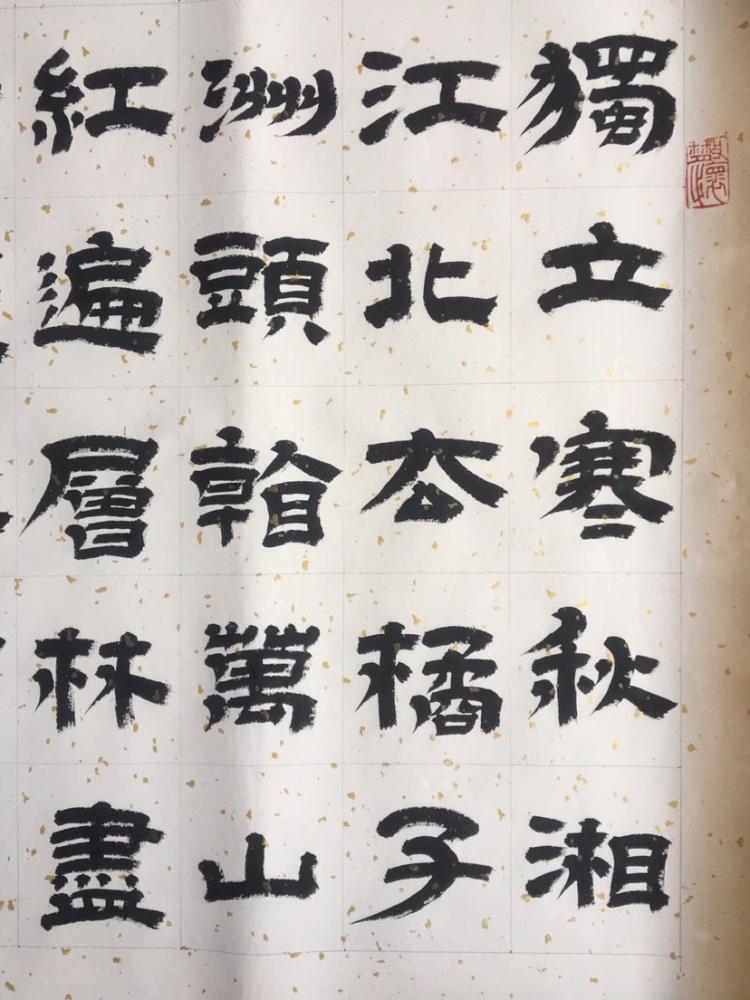 獨立寒秋湘
江北去橘子
洲頭看萬山
紅遍層林盡